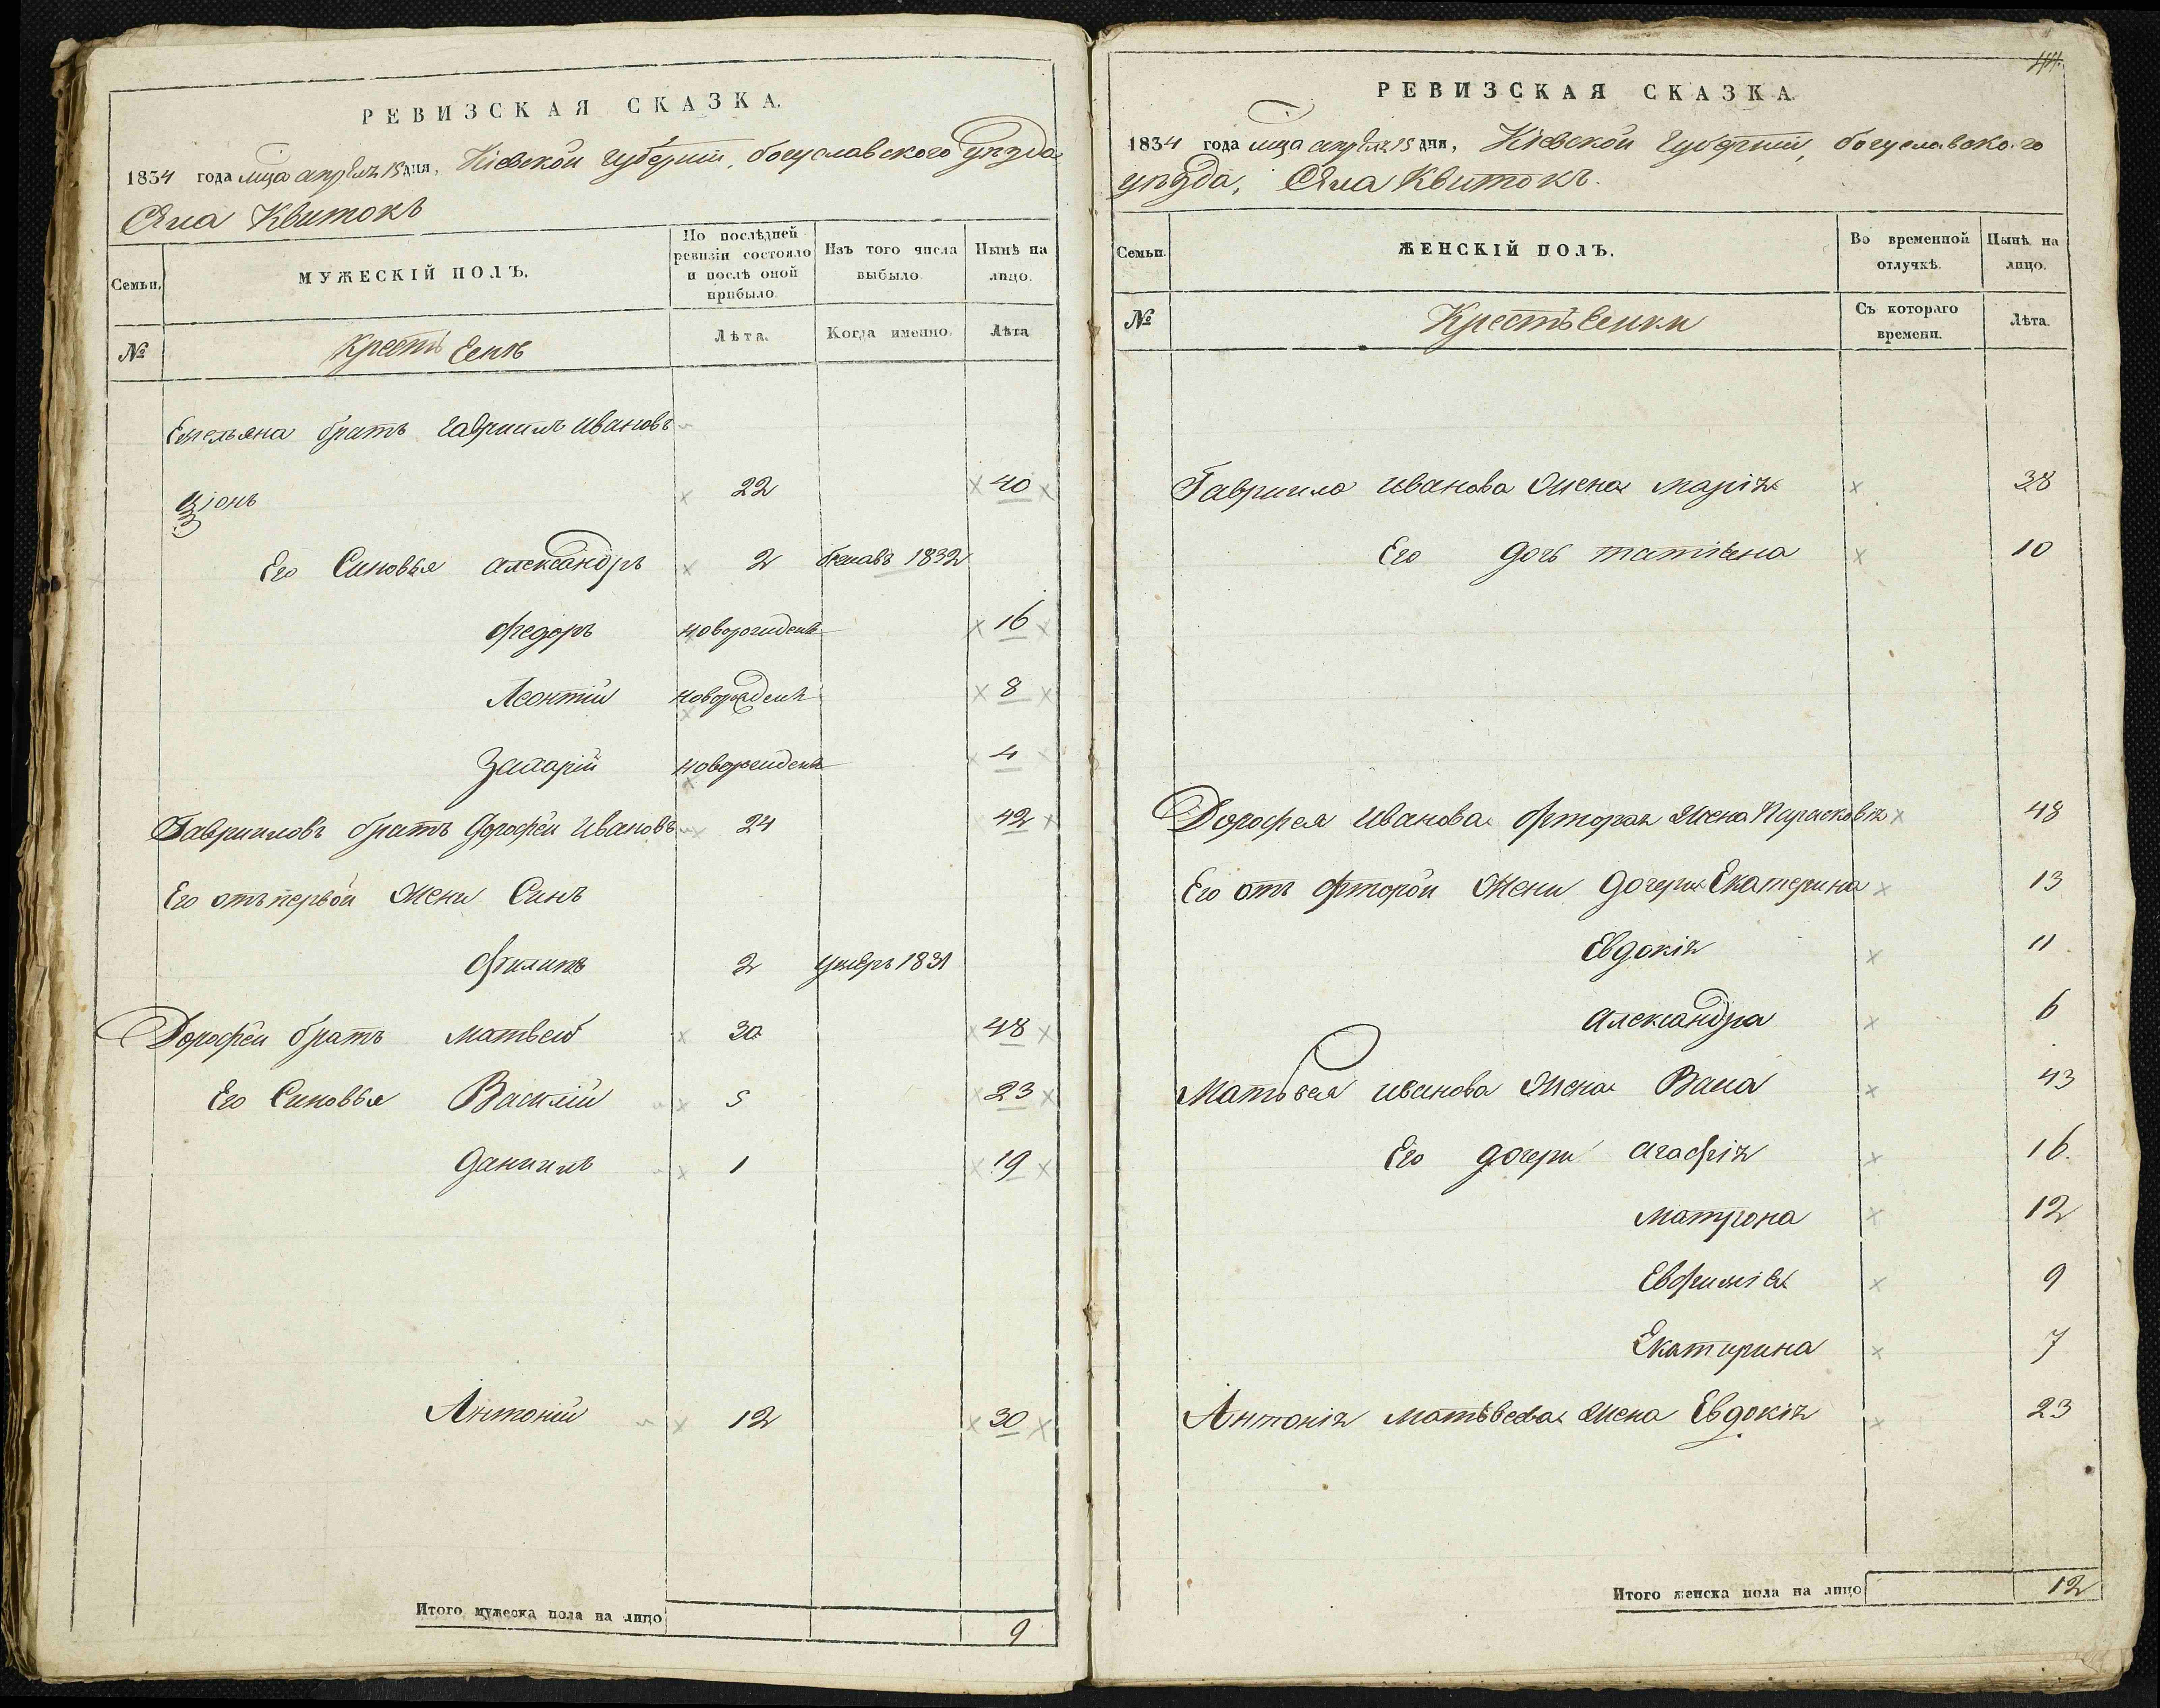 РЕВИЗСКАЯ СКАЗКА.
1834 года мца апреля 15 дня, Кіевской губерніи, богуславского уѣзда
Села Квитокъ
Семьи.
МУЖЕСКІЙ ПОЛЪ.
По послѣдней ревизіи состояло и послѣ оной прибыло.
Изъ того числа выбыло.
Нынѣ на лицо.
№
Лѣта.
Когда именно.
Лѣта
Емельяна братъ гавриилъ Ивановъ
22 40
Его Синовья александръ 2 1832
федоръ 16
Леонтій 8
Захарій 4
Гавриловъ братъ дорофей Ивановъ 24 42
Его отъ первой жени Синъ
филипъ 2 умеръ 1831
Дорофей братъ Матвей 30 48
Его Синовья Василій 5 23
даниилъ 1 19
Антоній 12 30
Итого мужеска пола на лицо 9
44.
РЕВИЗСКАЯ СКАЗКА.
1834 года мца апреля 15 дня, Кіевской Губерніи, богуславского
уѣзда, Села Квитокъ.
Семьи.
ЖЕНСКІЙ ПОЛЪ.
Во временной отлучкѣ.
Нынѣ на лицо.
№
Съ котораго времени.
Лѣта.
Гавриила иванова жена марія 38
Его дочь татіяна 10
Дорофея Иванова фторая жена Парасковія 48
Его отъ фторой жени дочери Екатерина 13
Евдокія 11
александра 6
Матвея иванова жена Васа 43
Его дочери агафія 16
матрона 12
Евфимія 9
Екатирина 7
Антонія матвеева жена Евдокія 23
Итого женска пола на лицо 12